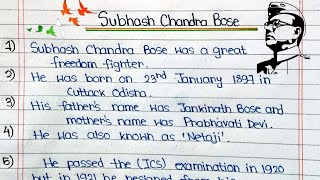 Subhash Chandra Bose
1) Subhash Chandra Bose was a great
freedom fighter.
2) He was born on 23rd January 1897 in
Cuttack Odisha.
3) His father's name was Jankinath Bose and
mother's name was Prabhavati Devi.
4) He was also known as 'Netaji'.
5) He passed the (ICS) examination in 1920
but in 1921 he resigned from his